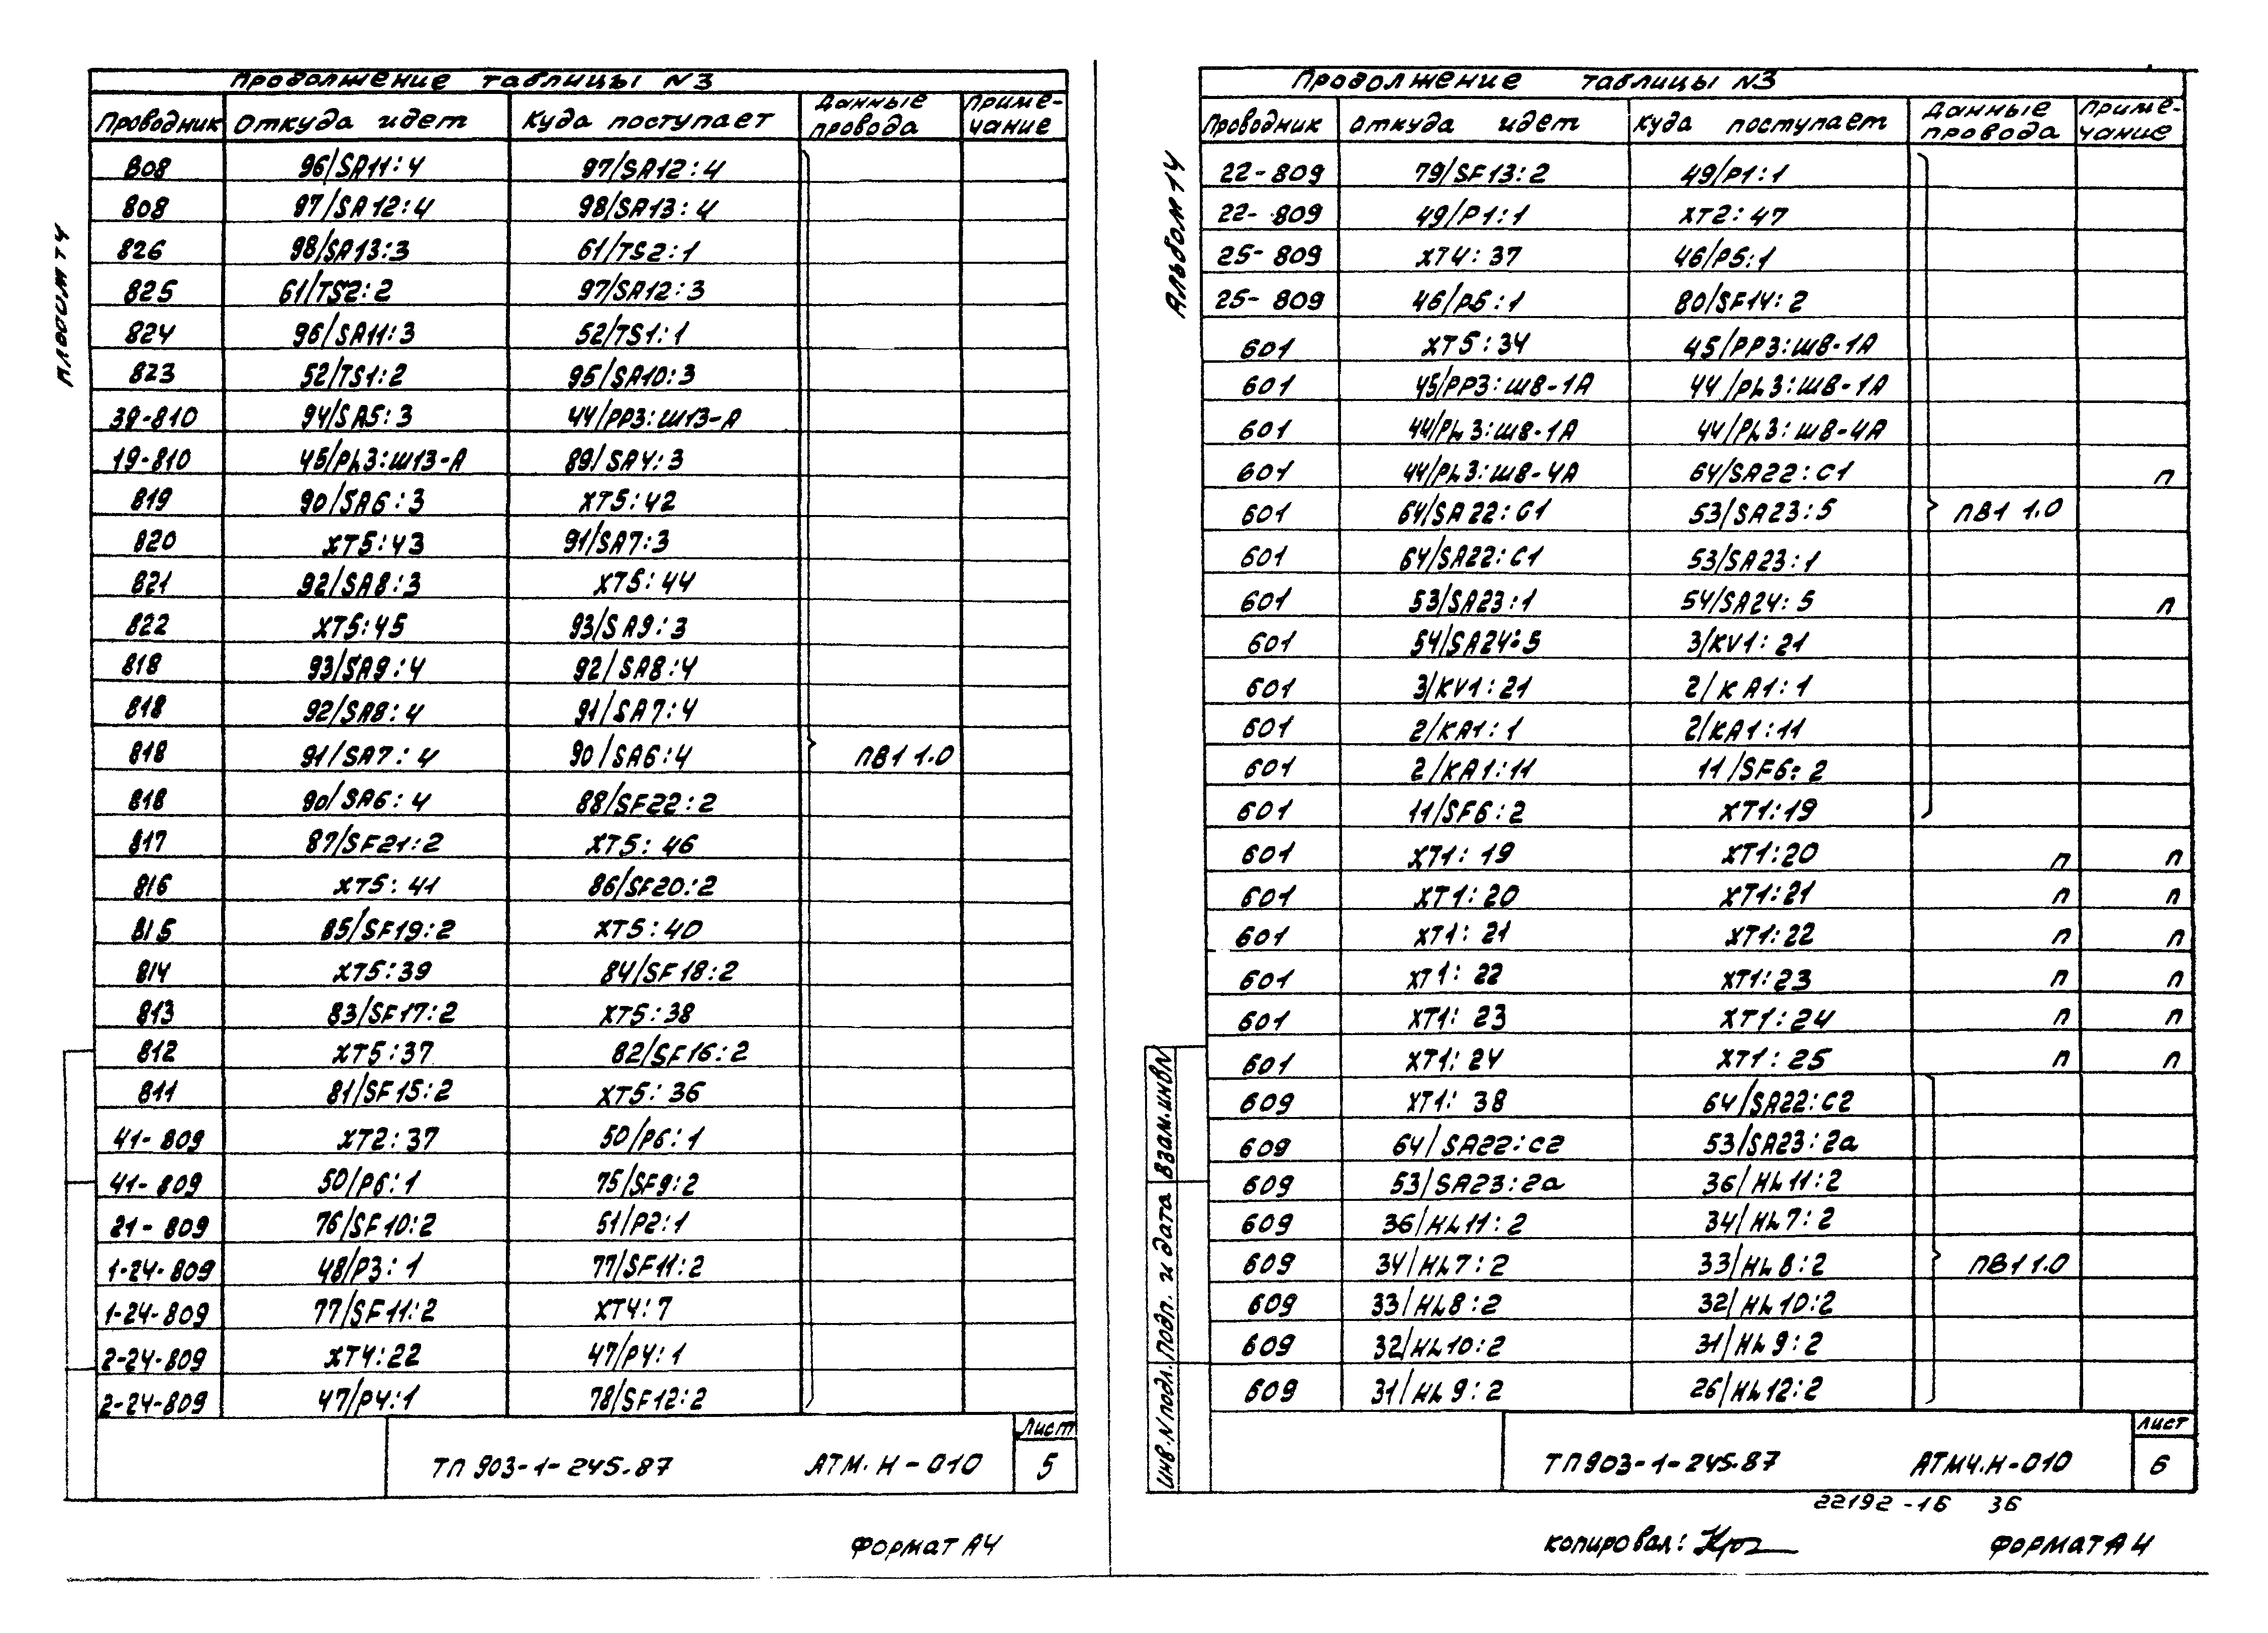 Продолжение таблицы N3
Проводник Откуда идет Куда поступает Данные провода Примечание
808 96/SA11:4 97/SA12:4
808 97/SA12:4 98/SA13:4
826 98/SA13:3 61/TS2:1
825 61/TS2:2 97/SA12:3
824 96/SA11:3 52/TS1:1
823 52/TS1:2 95/SA10:3
39-810 94/SA5:3 44/PP3:Ш13-А
19-810 45/PL3:Ш13-А 89/SA4:3
819 90/SA6:3 XT5:42
820 XT5:43 91/SA7:3
821 92/SA8:3 XT5:44
822 XT5:45 93/SA9:3
818 93/SA9:4 92/SA8:4
818 92/SA8:4 91/SA7:4
818 91/SA7:4 90/SA6:4 ПВ1 1.0
818 90/SA6:4 88/SF22:2
817 87/SF21:2 XT5:46
816 XT5:41 86/SF20:2
815 85/SF19:2 XT5:40
814 XT5:39 84/SF18:2
813 83/SF17:2 XT5:38
812 XT5:37 82/SF16:2
811 81/SF15:2 XT5:36
41-809 XT2:37 50/P6:1
41-809 50/P6:1 75/SF9:2
21-809 76/SF10:2 51/P2:1
1-24-809 48/P3:1 77/SF11:2
1-24-809 77/SF11:2 XT4:7
2-24-809 XT4:22 47/P4:1
2-24-809 47/P4:1 78/SF12:2
ТП 903-1-245.87 АТМ.Н-010 Лист 5
Формат А4
Альбом 14
Продолжение таблицы N3
Проводник Откуда идет Куда поступает Данные провода Примечание
22-809 79/SF13:2 49/P1:1
22-809 49/P1:1 XT2:47
25-809 XT4:37 46/P5:1
25-809 46/P5:1 80/SF14:2
601 XT5:34 45/PP3:Ш8-1А
601 45/PP3:Ш8-1А 44/PL3:Ш8-1А
601 44/PL3:Ш8-1А 44/PL3:Ш8-4А
601 44/PL3:Ш8-4А 64/SA22:C1 п
601 64/SA22:C1 53/SA23:5 ПВ1 1.0
601 64/SA22:C1 53/SA23:1
601 53/SA23:1 54/SA24:5 п
601 54/SA24:5 3/KV1:21
601 3/KV1:21 2/KA1:1
601 2/KA1:1 2/KA1:11
601 2/KA1:11 11/SF6:2
601 11/SF6:2 XT1:19
601 XT1:19 XT1:20 п п
601 XT1:20 XT1:21 п п
601 XT1:21 XT1:22 п п
601 XT1:22 XT1:23 п п
601 XT1:23 XT1:24 п п
601 XT1:24 XT1:25 п п
609 XT1:38 64/SA22:C2
609 64/SA22:C2 53/SA23:2а
609 53/SA23:2а 36/HL11:2
609 36/HL11:2 34/HL7:2
609 34/HL7:2 33/HL8:2 ПВ1 1.0
609 33/HL8:2 32/HL10:2
609 32/HL10:2 31/HL9:2
609 31/HL9:2 26/HL12:2
Инв.N подл. Подп. и дата Взам.инвN
ТП 903-1-245.87 АТМ4.Н-010 Лист 6
22192-16 36
Копировал: Формат А4